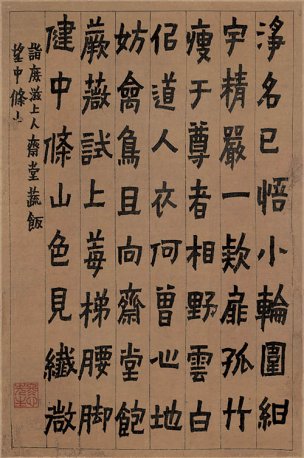 淨名已悟小輪圍紺
宇精嚴一欵扉孤竹
瘦于尊者相野雲白
佀道人衣何曾心地
妨禽鳥且向齋堂飽
蕨薇試上莓梯腰脚
健中條山色見纖微
詣底滋上人齋堂蔬飯
望中條山